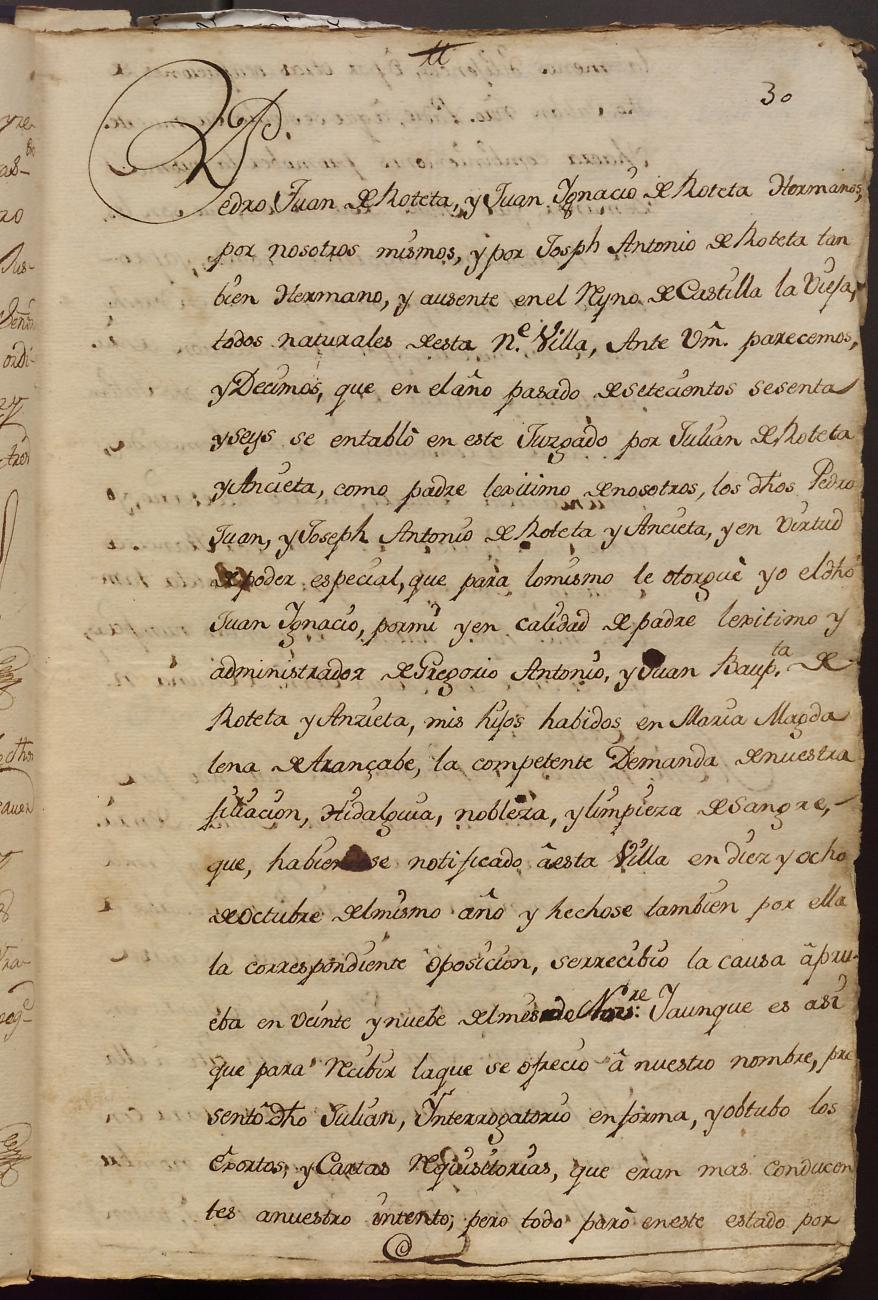 30
Pedro Juan de Roteta, y Juan Ygnacio de Roteta Hermanos,
por nosotros mismos, y por Joseph Antonio de Roteta tan
bien Hermano, y ausente en el Reyno de Castilla la Vieja,
todos naturales de esta N.e Villa, Ante Vm. parecemos,
y Decimos, que en el año pasado de setecientos sesenta
y seys se entablò en este Juzgado por Julian de Roteta
y Ancieta, como padre lexitimo de nosotros, los dhos Pedro
Juan, y Joseph Antonio de Roteta y Ancieta, y en virtud
de poder especial, que para lo mismo le otorguè yo el dho
Juan Ygnacio, por mi y en calidad de padre lexitimo y
administrador de Gregorio Antonio, y Juan Baup.ta de
Roteta y Anzieta, mis hijos habidos en Maria Magda
lena de Arançabe, la competente Demanda de nuestra
filiacion, Hidalguia, nobleza, y limpieza de sangre,
que, habien se notificado â esta Villa en diez y ocho
de Octubre del mismo año y hechose tambien por ella
la correspondiente oposicion, se rrecibio la causa â pru-
eba en veinte y nuebe del mes de Nov.re Y aunque es asi
que para recibir la que se ofrecio â nuestro nombre, pre
sentò dho Julian, Ynterrogatorio en forma, y obtubo los
Exortos, y Cartas Requisitorias, que eran mas conducen
tes a nuestro intento; pero todo parò en este estado por